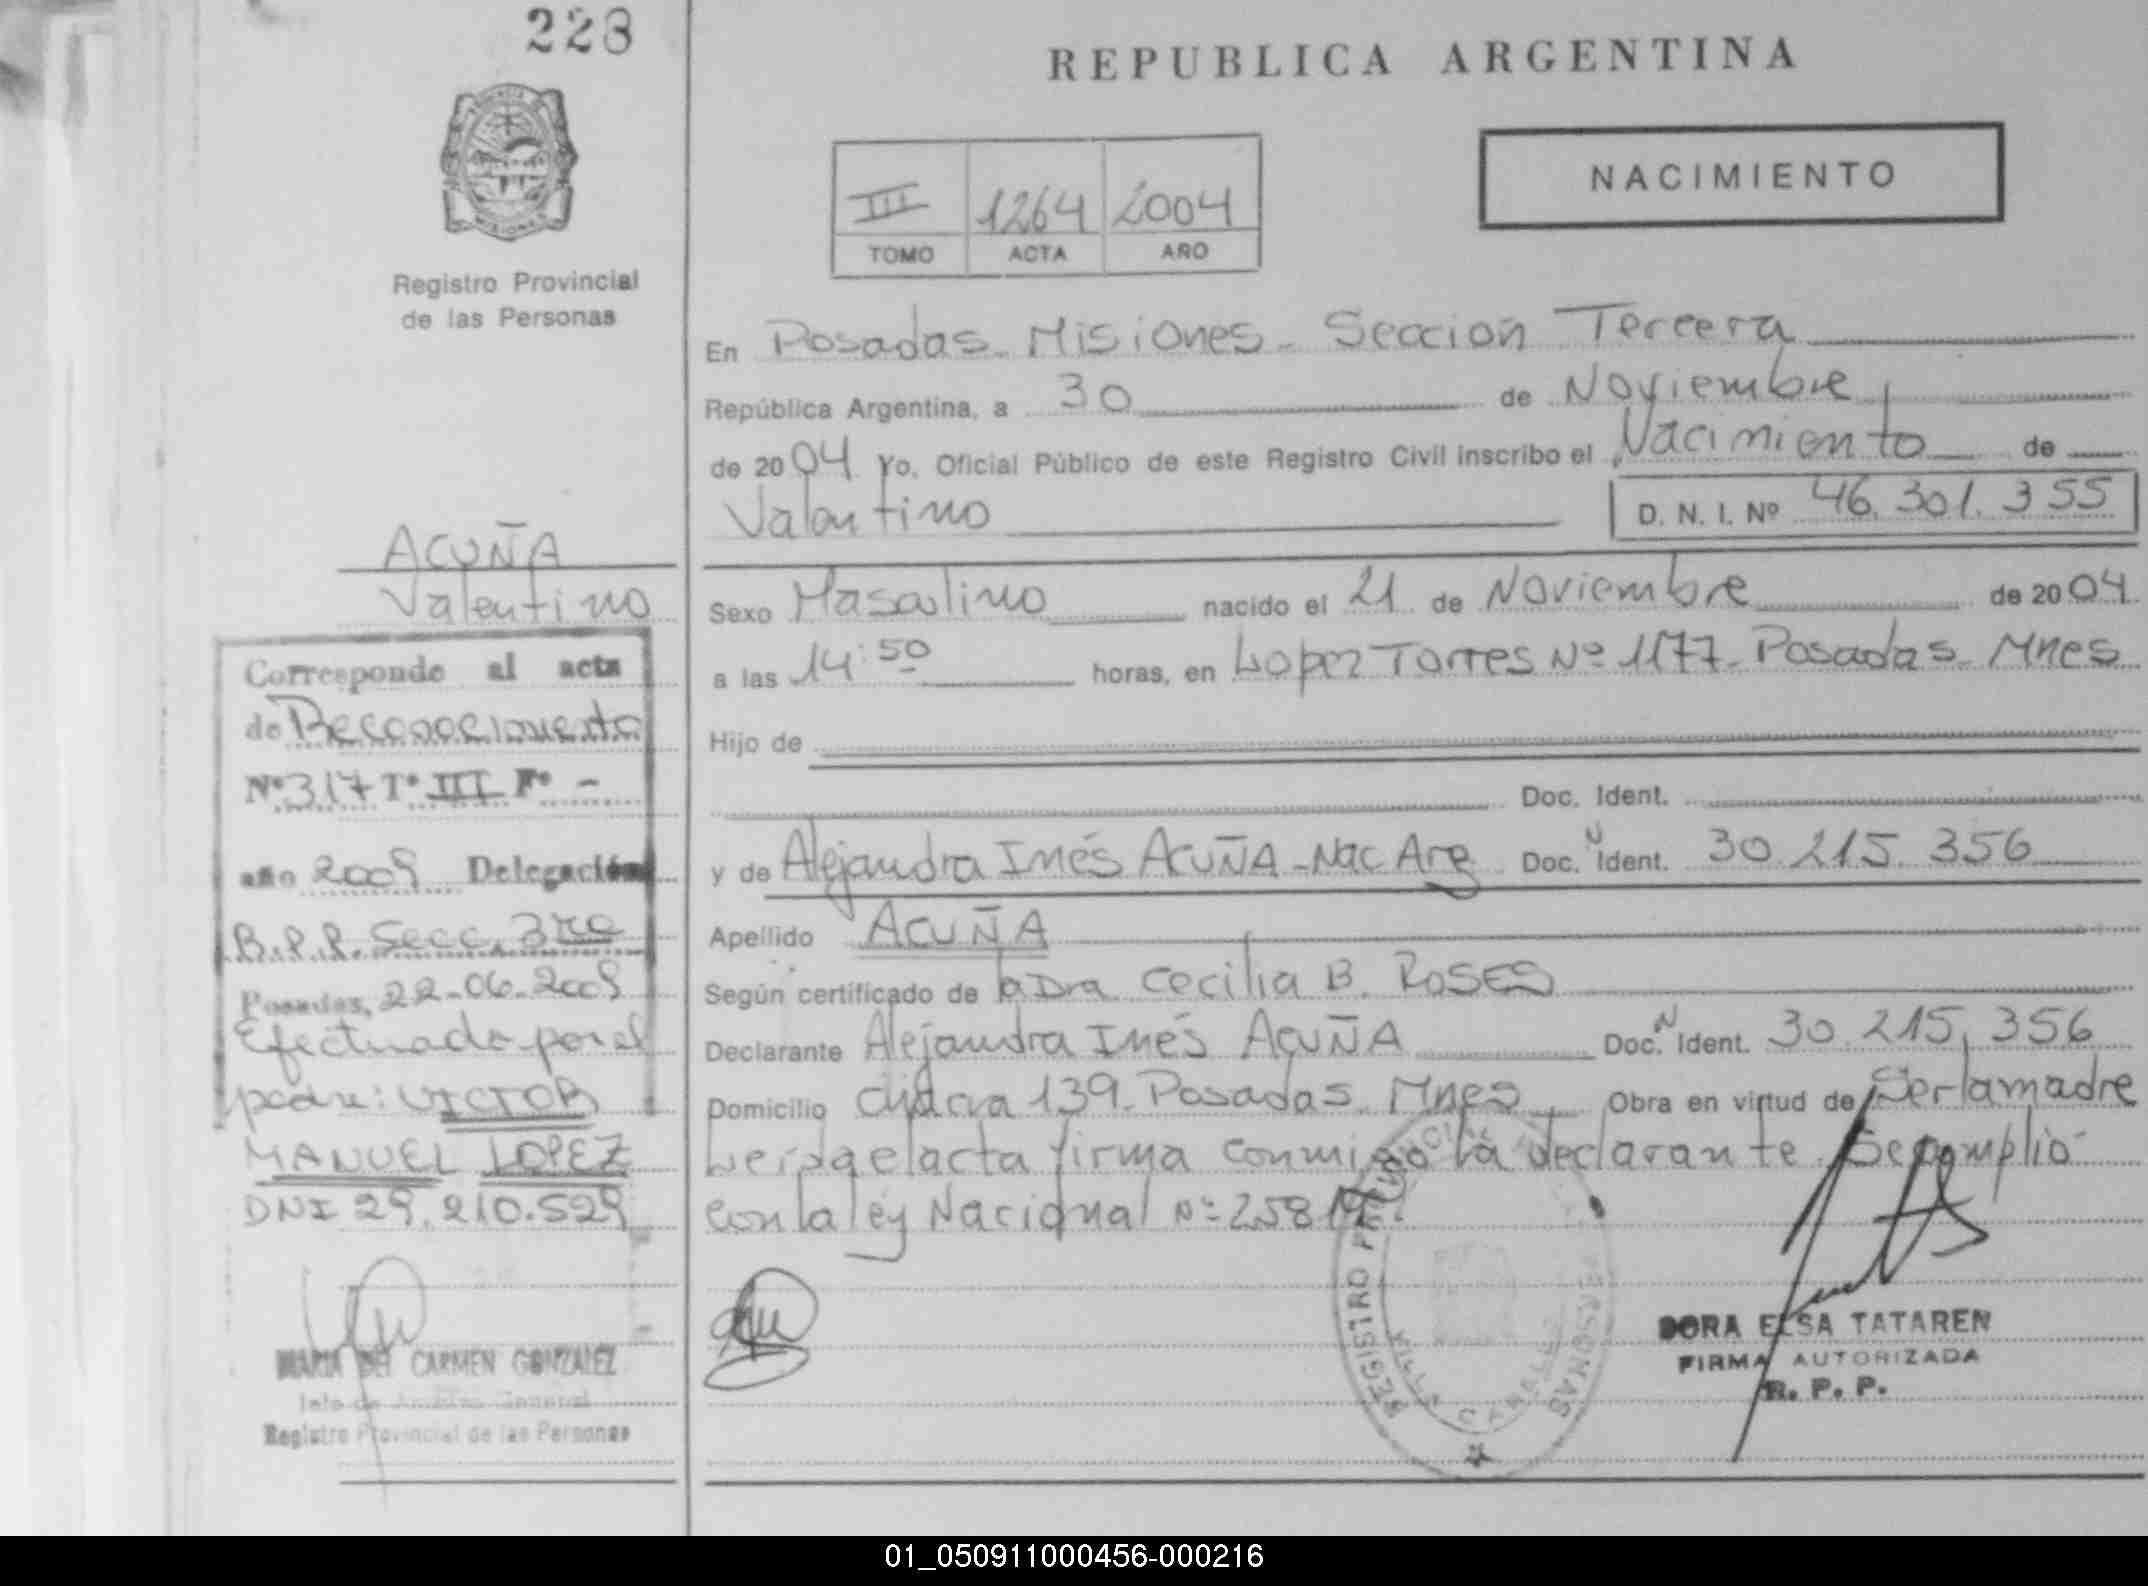 228
REPUBLICA ARGENTINA
NACIMIENTO
III 1264 2004
TOMO ACTA AÑO
Registro Provincial
de las Personas
En Posadas - Misiones - Sección Tercera
República Argentina, a 30 de Noviembre
de 2004 Yo, Oficial Público de este Registro Civil inscribo el Nacimiento de
Valentino
D. N. I. Nº 46.301.355
ACUÑA
Valentino
Sexo Masculino nacido el 21 de Noviembre de 2004
a las 14:50 horas, en Lopez Torres Nº 1177 - Posadas - Mnes
Hijo de
Doc. Ident.
y de Alejandra Inés ACUÑA - Nac Arg Doc. N Ident. 30.215.356
Apellido ACUÑA
Según certificado de la Dra Cecilia B. ROSES
Declarante Alejandra Inés ACUÑA Doc. N Ident. 30.215.356
Domicilio 139 - Posadas - Mnes Obra en virtud de Ser la madre
Leida el acta firma conmigo la declarante. Se complió
con la ley Nacional Nº 258
Corresponde al acta
de Reconocimiento
Nº 317 Tº III Fº -
año 2009 Delegación
R.P.P. Secc. 3ra
Posadas, 22-06-2009
Efectuado por el
padre: VICTOR
MANUEL LOPEZ
DNI 29.210.529
MARIA DEL CARMEN GONZALEZ
Jefe de General
Registro Provincial de las Personas
REGISTRO PROVINCIAL PERSONAS
VILLA CABALLE
DORA ELSA TATAREN
FIRMA AUTORIZADA
R. P. P.
01_050911000456-000216